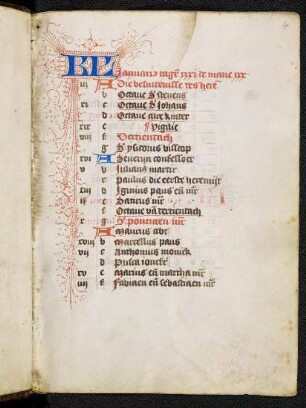 KL Januario heeft xxxi de mane xxx
iii A Die besnidenisse ons heren
b Octave S Stevens
xi c Octave S Johans
d Octave alre kinder
xix e Vigilie
viii f Dertiendach
g S ysitorus bisscop
xvi A Severijn confessoer
v b Juliaen martir
c Paulus die eerste heremijt
xiii d Iginius paus en mr
ii e Sanctus mr
f Octave van dertiendach
x g S ponciaen mr
A Maurus abt
xviii b Marcellus paus
vii c Anthonius monick
d Prisca joncfr
xv e Marius en martha mr
iiii f Fabiaen en sebastiaen mr